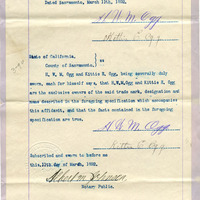 Dated Sacramento, March 13th, 1902.
H W M Ogg
Kittie E. Ogg
State of California,
County of Sacramento. ) ss
H. W. M. Ogg and Kittie E. Ogg, being severally duly
sworn, each for himself says, that H.W.M.Ogg and Kittie E. Ogg
are the exclusive owners of the said trade mark, designation and
name described in the foregoing specification which accompanies
this affidavit, and that the facts contained in the foregoing
specification are true.
H W M Ogg
Kittie E. Ogg
Subscribed and sworn to before me
this 13th day of March, 1902.
Johnson
Notary Public.